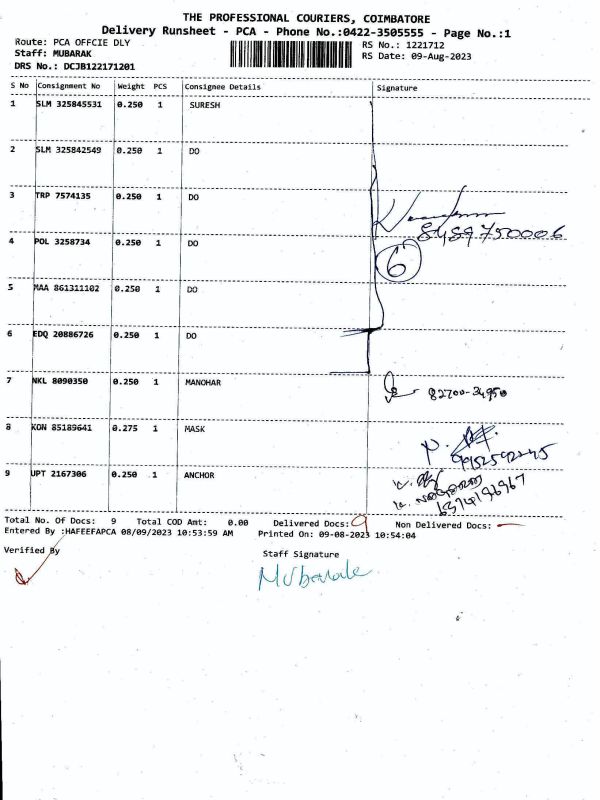 THE PROFESSIONAL COURIERS, COIMBATORE
Delivery Runsheet - PCA - Phone No.:0422-3505555 - Page No.:1
Route: PCA OFFCIE DLY
RS No.: 1221712
Staff: MUBARAK
RS Date: 09-Aug-2023
DRS No.: DCJB122171201
S No Consignment No Weight PCS Consignee Details Signature
1 SLM 325845531 0.250 1 SURESH
2 SLM 325842549 0.250 1 DO
3 TRP 7574135 0.250 1 DO
8489750006
4 POL 3258734 0.250 1 DO
6
5 MAA 861311102 0.250 1 DO
6 EDQ 20886726 0.250 1 DO
7 NKL 8090350 0.250 1 MANOHAR
82700-34950
8 KON 85189641 0.275 1 MASK
9 UPT 2167306 0.250 1 ANCHOR
6374196967
Total No. Of Docs: 9 Total COD Amt: 0.00 Delivered Docs: 9 Non Delivered Docs: —
Entered By :HAFEEFAPCA 08/09/2023 10:53:59 AM Printed On: 09-08-2023 10:54:04
Verified By
Staff Signature
Mubarak